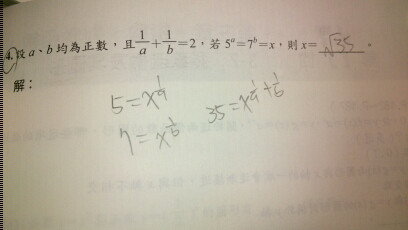 4. 設 a、b 均為正數，且 1/a + 1/b = 2，若 5^a = 7^b = x，則 x = √35 。
解：
5 = x^(1/a)
35 = x^(1/a + 1/b)
7 = x^(1/b)